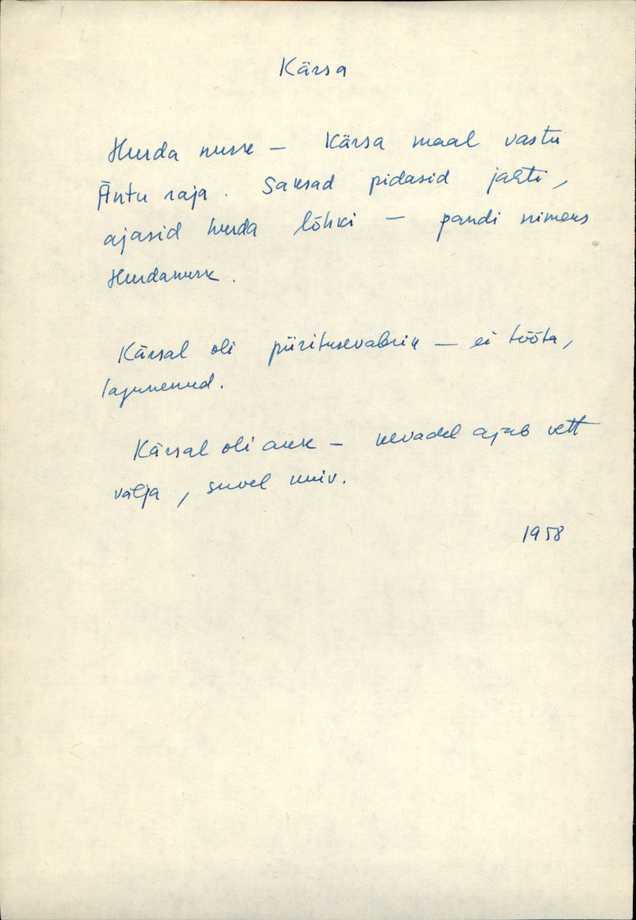 Kärsa
Hurda nurk – Kärsa maal vastu
Äntu raja. Saksad pidasid jahti,
ajasid hurda lõhki – pandi nimeks
Hurdanurk.
Kärsal oli piiritusevabrik – ei tööta,
lagunenud.
Kärsal oli auk – kevadel ajab vett
välja, suvel kuiv.
1958